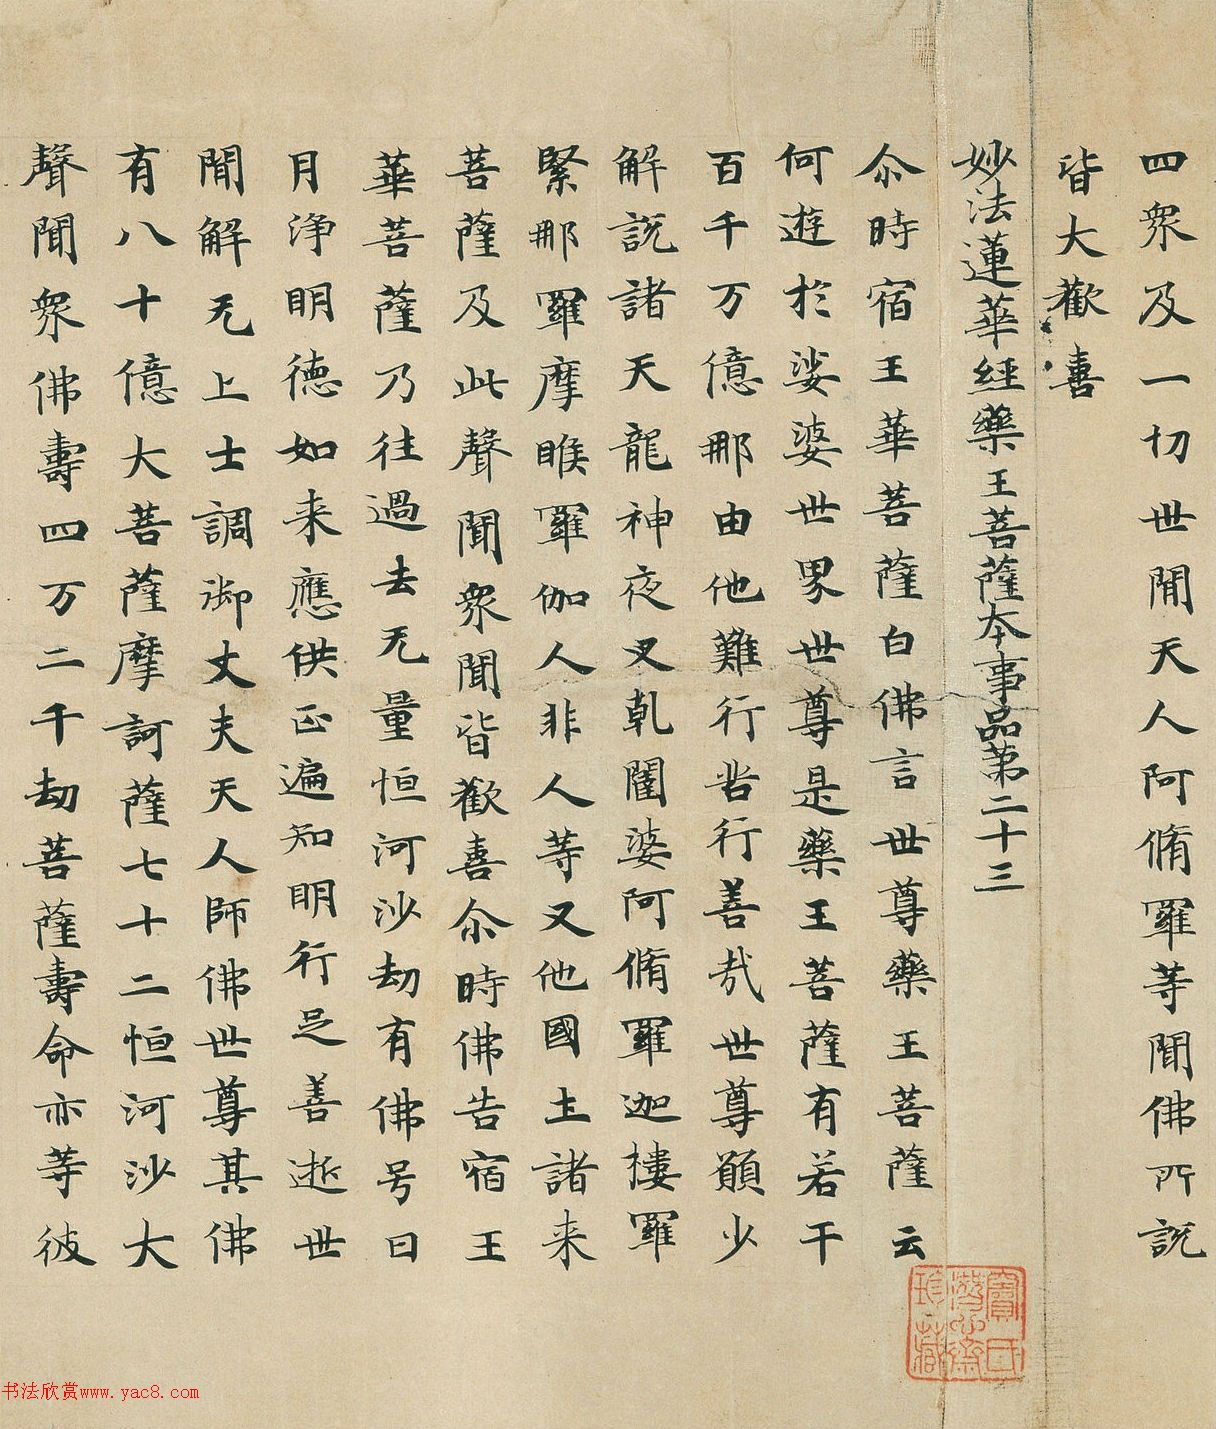 四衆及一切世閒天人阿脩羅等聞佛所説
皆大歡喜
妙法蓮華經藥王菩薩本事品第二十三
尒時宿王華菩薩白佛言世尊藥王菩薩云
何遊於娑婆世界世尊是藥王菩薩有若干
百千万億那由他難行苦行善哉世尊願少
解説諸天龍神夜叉乹闥婆阿脩羅迦樓羅
緊那羅摩睺羅伽人非人等又他國土諸来
菩薩及此聲聞衆聞皆歡喜尒時佛告宿王
華菩薩乃往過去无量恒河沙劫有佛号曰
月浄明德如来應供正遍知明行足善逝世
閒解无上士調御丈夫天人師佛世尊其佛
有八十億大菩薩摩訶薩七十二恒河沙大
聲聞衆佛壽四万二千劫菩薩壽命亦等彼
竇氏
潛心齋
珍藏
书法欣赏www.yac8.com